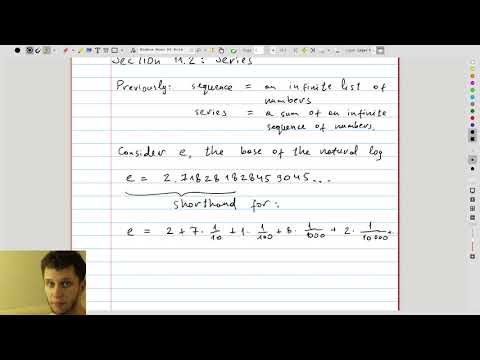 Section 11.2: Series
Previously: sequence = an infinite list of
numbers
series = a sum of an infinite
sequence of numbers.
Consider e, the base of the natural log
e = 2.718281828459045...
shorthand for:
e = 2 + 7 · 1/10 + 1 · 1/100 + 8 · 1/1000 + 2 · 1/10 000 + ..